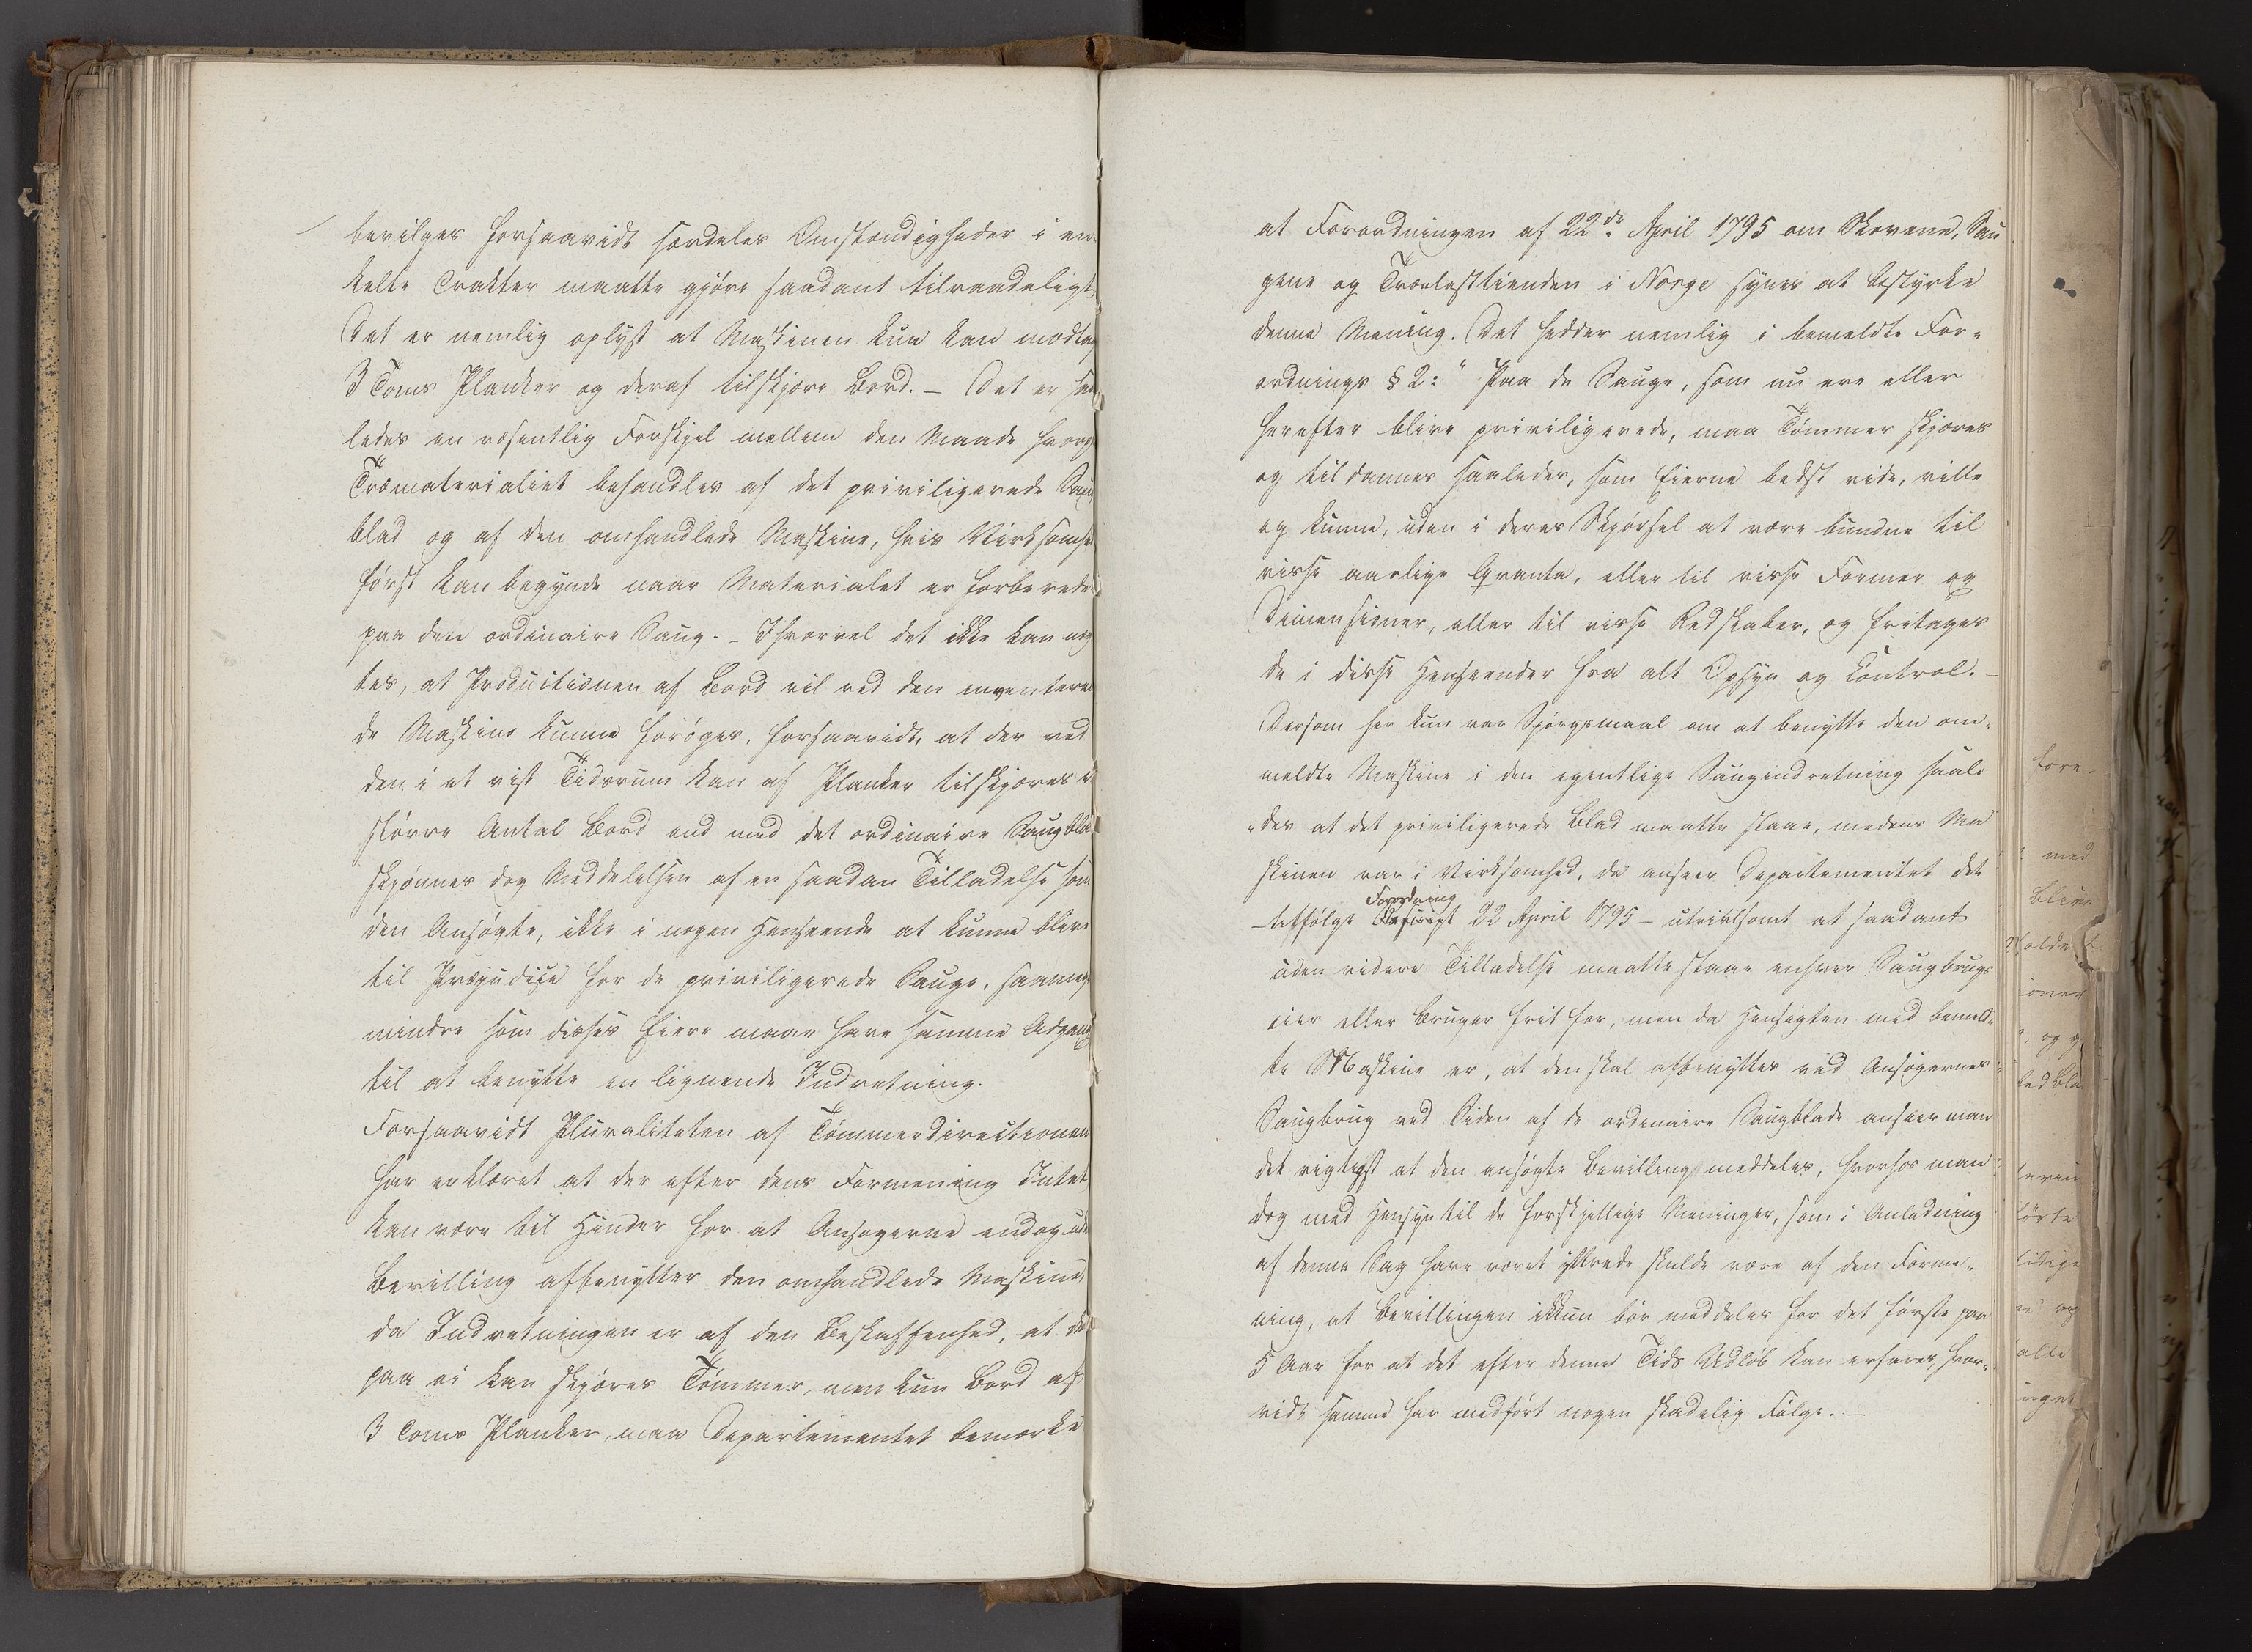 bevilges forsaavidt særdeles Omstændigheder i en
kelte Tratter maatte gjøre saadant tilraadeligt,
Det er nemlig oplyst at Maskinen kun kan modtag
3 Toms Planker og deraf tilskjære Bord. – Det er saa
ledes en væsentlig Forskjel mellem den Maade hvorp
Træmaterialiet behandles af det priviligerede Saug
blad og af den omhandlede Maskine, hvis Virksomhe
først kan begynde naar Materialet er forberede
paa den ordinaire Saug. – Ihvorvel det ikke kan næg
tes, at Productionen af Bord vil ved den inventere
de Maskine kunne forøges, forsaavidt, at der ved
den i et vist Tidsrum kan af Planker tilskjæres i
større Antal Bord end med det ordinaire Saugbla
skjønnes dog Meddelelsen af en saadan Tilladelse som
den Ansøgte, ikke i nogen Henseende at kunne blive
til Præjudice for de priviligerede Sauge, saameg
mindre som disses Eiere maae have samme Adgang
til at benytte en lignende Indretning.
Forsaavidt Pluraliteten af Tømmerdirectionen
har erklæret at der efter dens Formening Intet
kan være til Hinder for at Ansøgerne endog ude
Bevilling afbenytter den omhandlede Maskine,
da Indretningen er af den Beskaffenhed, at der
paa ei kan skjæres Tømmer, men kun Bord af
3 Toms Planker, maa Departementet bemærke
at Forordningen af 22de April 1795 om Skovene, Sau
gene og Trælasttienden i Norge synes at bestyrke
denne Mening. Det hedder nemlig i bemeldte For-
ordnings § 2: "Paa de Sauge, som nu ere eller
herefter blive priviligerede, maa Tømmer skjæres
og tildannes saaledes, som Eierne bedst vide, ville
og kunne, uden i deres Skjørsel at være bundne til
visse aarlige Qvanta, eller til visse Former og
Dimensioner, eller til visse Redskaber, og fritages
de i disse Henseender fra alt Opsyn og Control. –
Dersom her kun var Spørgsmaal om at benytte den om-
meldte Maskine i den egentlige Saugindretning saale
-des at det priviligerede Blad maatte staae, medens Ma
skinen var i Virksomhed, da anseer Departementet det
Forordning
– ifølge 22 April 1795 – utvivlsomt at saadant
uden videre Tilladelse maatte staae enhver Saugbrugs
eier eller Bruger frit for, men da Hensigten med bemeld
te Maskine er, at den skal afbenyttes ved Ansøgernes
Saugbrug ved Siden af de ordinaire Saugblade anseer man
det rigtigst at den ansøgte Bevilling meddeles, hvorhos man
dog med Hensyn til de forskjellige Meninger, som i Anledning
af denne Sag have været yttrede skulde være af den Forme-
ning, at Bevillingen ikkun bør meddeles for det første paa
5 Aar for at det efter denne Tids Udløb kan erfares, hvor-
vidt samme har medført nogen skadelig Følge. –